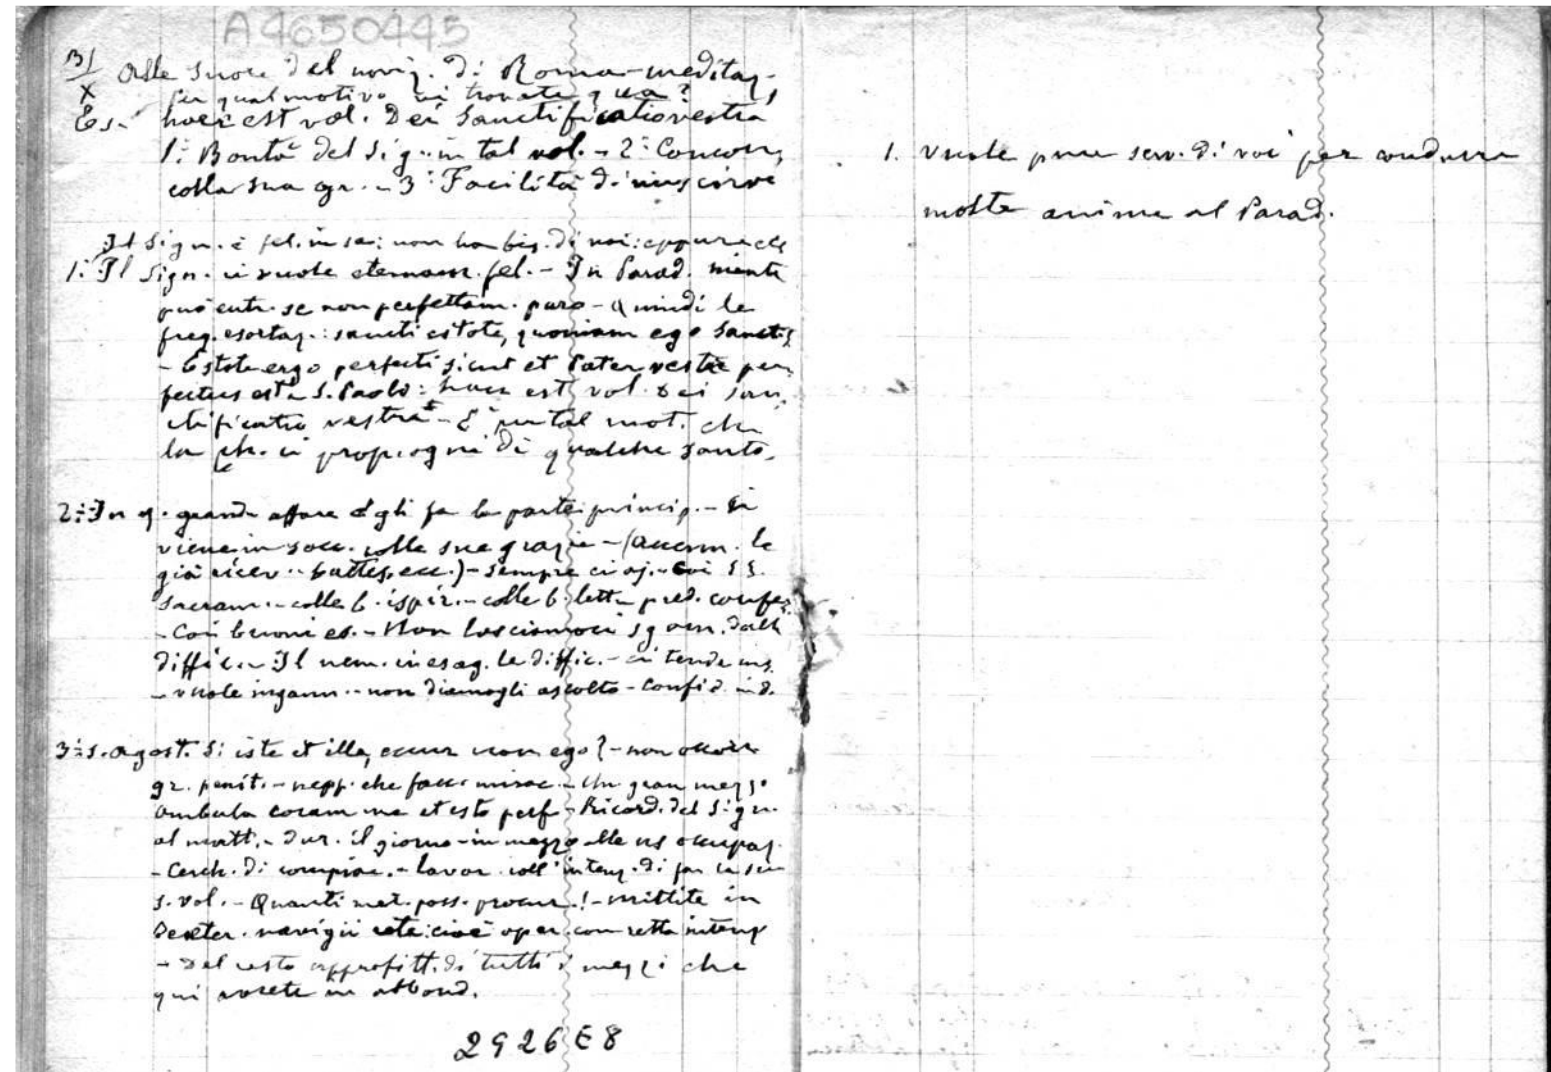 A4650445
Alle Suore del noviz. di Roma - meditaz.
per qual motivo vi trovate qua?
Es. haec est vol. Dei sanctificatio vestra
1° Bontà del Sig. in tal vol. - 2° Concorr.
colla sua gr. - 3° Facilità di riuscirvi
Il Sign. è fel. in se: non ha bis. di noi: eppure
1° Il Sign. ci vuole eternam. fel. - In Parad. niente
può entr. se non perfettam. puro - Quindi le
freq. esortaz.: sancti estote, quoniam ego sanctus
- Estote ergo perfecti sicut et Pater vester per
fectus est - S. Paolo: haec est vol. Dei san
ctificatio vestra - E' per tal mot. che
la Ch. ci prop. ogni dì qualche santo.
2° In q. grande affare egli fa la parte princip. - Ei
viene in socc. colle sue grazie - (Accenn. le
già ricev. - battes. ecc.) - Sempre ci aj. - coi SS.
Sacram. - colle b. ispir. - colle b. lett. - pred. confes.
- Coi buoni es. - Non lasciamoci sgom. dalle
diffic. - Il nem. ci esag. le diffic. - ci tende ins.
- vuole ingann. - non diamogli ascolto - Confid. in D.
3° S. Agost. Si iste et illa, cur non ego? - non occorr.
gr. penit. - nepp. che facc. mirac. - Un gran mezzo
Ambula coram me et esto perf. - Ricord. del Sign.
al matt. - dur. il giorno - in mezzo alle ns occupaz.
- Cerch. di compiac. - lavor. coll'intenz. di far la sua
s. vol. - Quanti mer. poss. procur.! - Mittite in
dexter. navigii rete: cioè oper. con retta intenz
- Del resto approfitt. di tutti i mezzi che
qui avete in abbond.
2926E8
1. Vuole pure serv. di voi per condurre
molte anime al Parad.